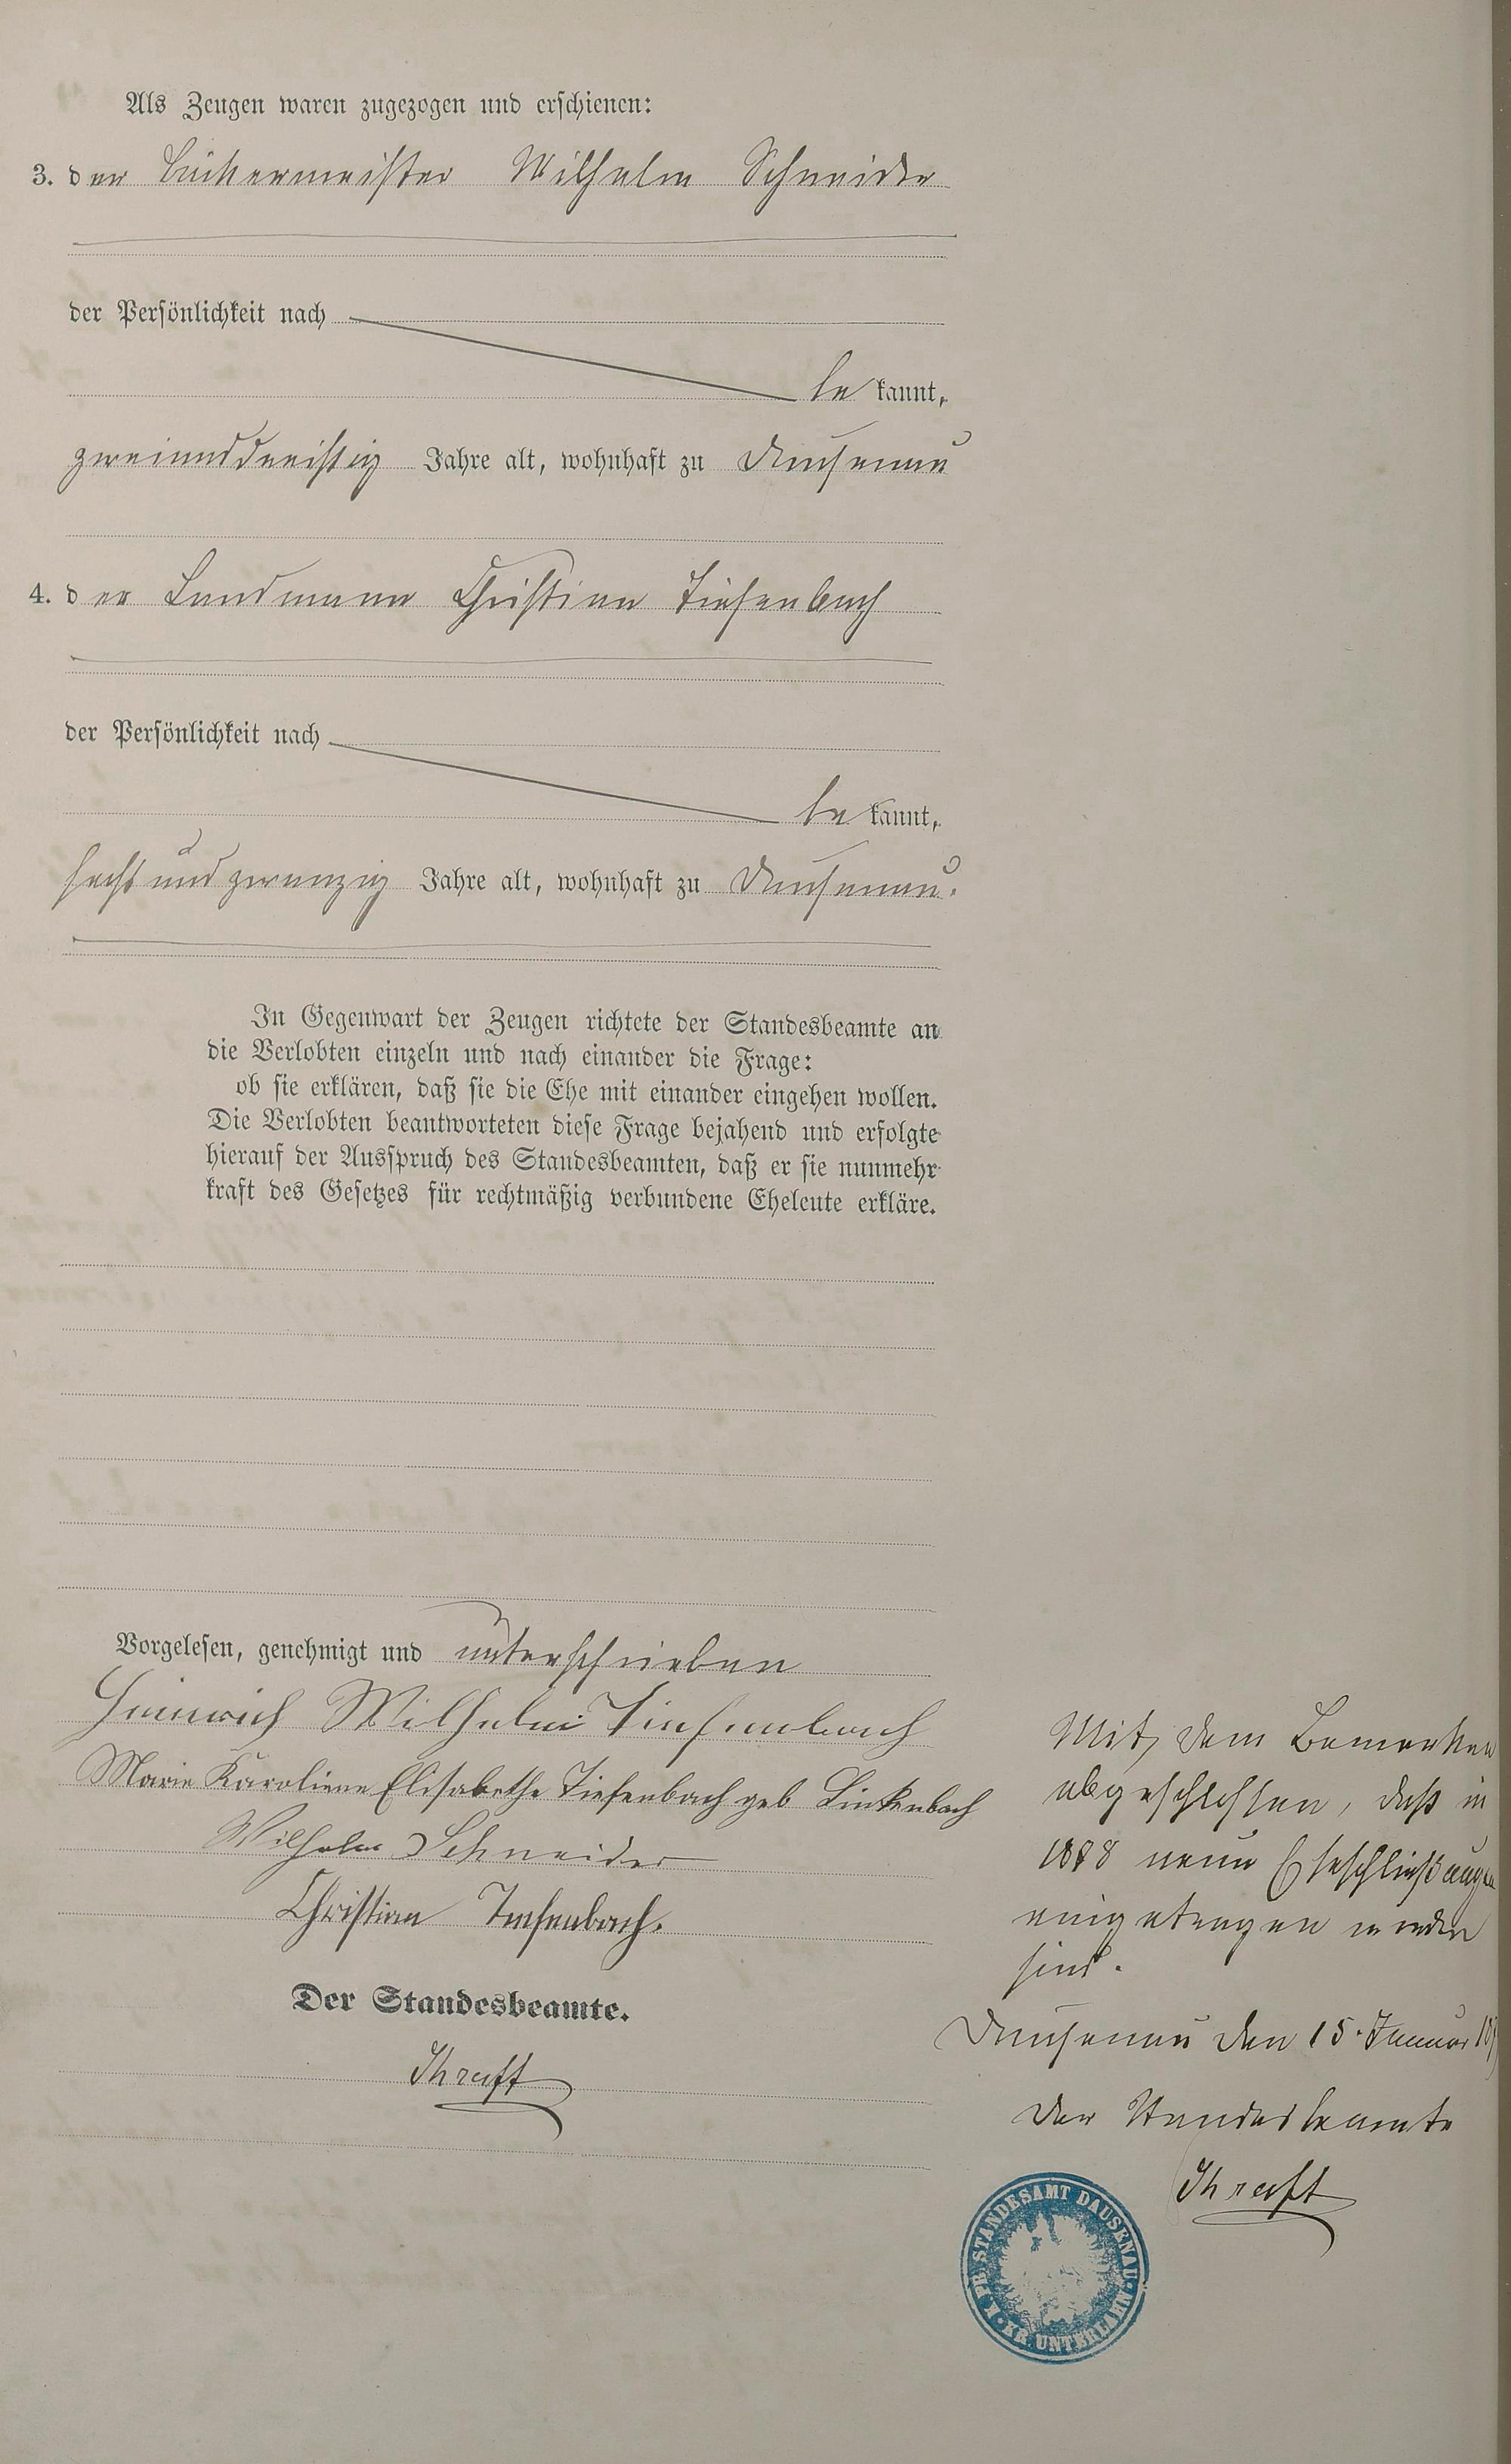 Als Zeugen waren zugezogen und erschienen:
3. der Bäckermeister Wilhelm Schneider
der Persönlichkeit nach
bekannt,
zweiunddreißig Jahre alt, wohnhaft zu Dausenau
4. der Landmann Christian Tiefenbach
der Persönlichkeit nach
bekannt,
sechs und zwanzig Jahre alt, wohnhaft zu Dausenau.
In Gegenwart der Zeugen richtete der Standesbeamte an
die Verlobten einzeln und nach einander die Frage:
ob sie erklären, daß sie die Ehe mit einander eingehen wollen.
Die Verlobten beantworteten diese Frage bejahend und erfolgte
hierauf der Ausspruch des Standesbeamten, daß er sie nunmehr
kraft des Gesetzes für rechtmäßig verbundene Eheleute erkläre.
Vorgelesen, genehmigt und unterschrieben
Heinrich Wilhelm Tiefenbach
Marie Karoliene Elisabethe Tiefenbach geb Linkenbach
Wilhelm Schneider
Christian Tiefenbach.
Der Standesbeamte.
Mit dem Bemerken
abgeschlossen, daß in
1888 neun Eheschließungen
eingetragen worden
sind.
Dausenau den 15. Januar
Der Standesbeamte
K. PR. STANDESAMT DAUSENAU · KR. UNTERLAHN ·